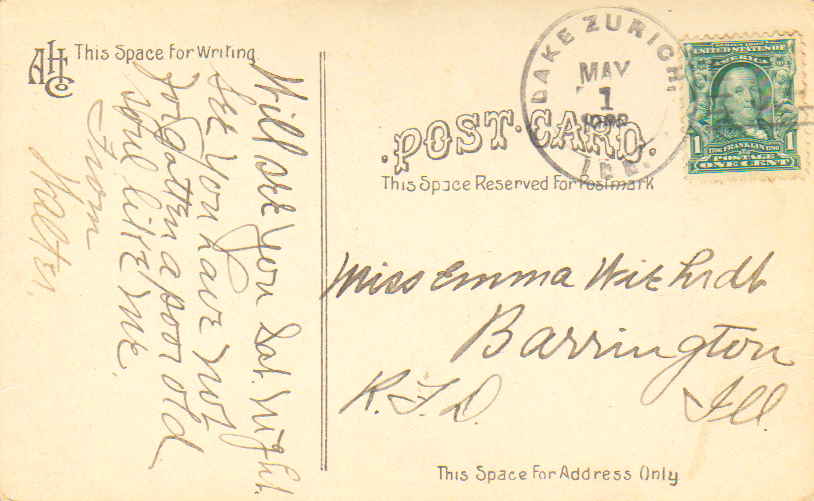 AHCo
This Space For Writing
Will see You Sat. Night.
See You have not
forgotten a poor old
soul like me.
From
Walter.
POST CARD.
This Space Reserved For Postmark
LAKE ZURICH,
MAY
1
ILL.
UNITED STATES OF
AMERICA
1 FRANKLIN 1
POSTAGE
ONE CENT
Miss Emma
Barrington
R.F.D. Ill
This Space For Address Only